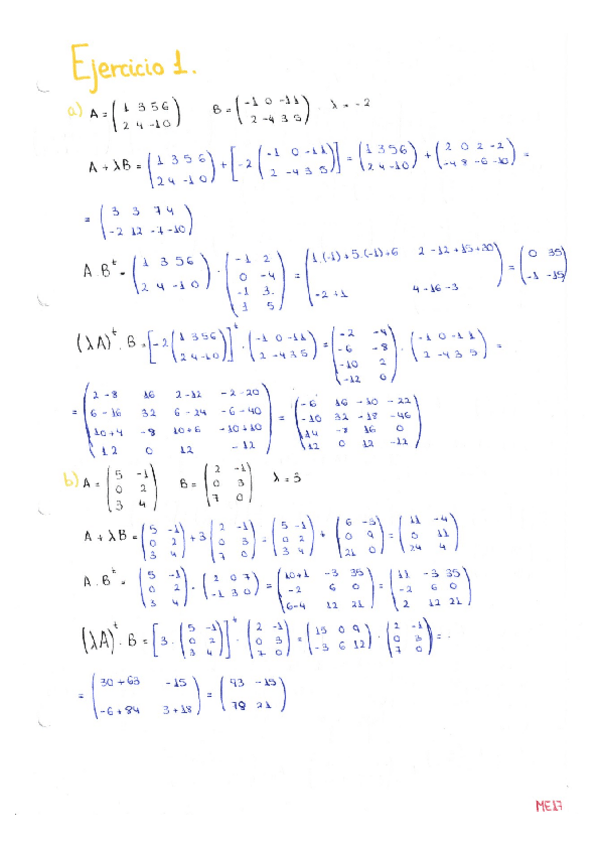 Ejercicio 1.
a) A = ( 1 3 5 6 / 2 4 -1 0 ) B = ( -1 0 -1 1 / 2 -4 3 5 ) λ = -2
A + λB = ( 1 3 5 6 / 2 4 -1 0 ) + [ -2 ( -1 0 -1 1 / 2 -4 3 5 ) ] = ( 1 3 5 6 / 2 4 -1 0 ) + ( 2 0 2 -2 / -4 8 -6 -10 ) =
= ( 3 3 7 4 / -2 12 -7 -10 )
A · Bᵗ = ( 1 3 5 6 / 2 4 -1 0 ) · ( -1 2 / 0 -4 / -1 3 / 1 5 ) = ( 1·(-1)+5·(-1)+6 2-12+15+30 / -2+1 4-16-3 ) = ( 0 35 / -1 -15 )
(λA)ᵗ · B = [ -2 ( 1 3 5 6 / 2 4 -1 0 ) ]ᵗ · ( -1 0 -1 1 / 2 -4 3 5 ) = ( -2 -4 / -6 -8 / -10 2 / -12 0 ) · ( -1 0 -1 1 / 2 -4 3 5 ) =
= ( 2-8 16 2-12 -2-20 / 6-16 32 6-24 -6-40 / 10+4 -8 10+6 -10+10 / 12 0 12 -12 ) = ( -6 16 -10 -22 / -10 32 -18 -46 / 14 -8 16 0 / 12 0 12 -12 )
b) A = ( 5 -1 / 0 2 / 3 4 ) B = ( 2 -1 / 0 3 / 7 0 ) λ = 3
A + λB = ( 5 -1 / 0 2 / 3 4 ) + 3 ( 2 -1 / 0 3 / 7 0 ) = ( 5 -1 / 0 2 / 3 4 ) + ( 6 -3 / 0 9 / 21 0 ) = ( 11 -4 / 0 11 / 24 4 )
A · Bᵗ = ( 5 -1 / 0 2 / 3 4 ) · ( 2 0 7 / -1 3 0 ) = ( 10+1 -3 35 / -2 6 0 / 6-4 12 21 ) = ( 11 -3 35 / -2 6 0 / 2 12 21 )
(λA)ᵗ · B = [ 3 · ( 5 -1 / 0 2 / 3 4 ) ]ᵗ · ( 2 -1 / 0 3 / 7 0 ) = ( 15 0 9 / -3 6 12 ) · ( 2 -1 / 0 3 / 7 0 ) =
= ( 30+63 -15 / -6+84 3+18 ) = ( 93 -15 / 78 21 )
ME17